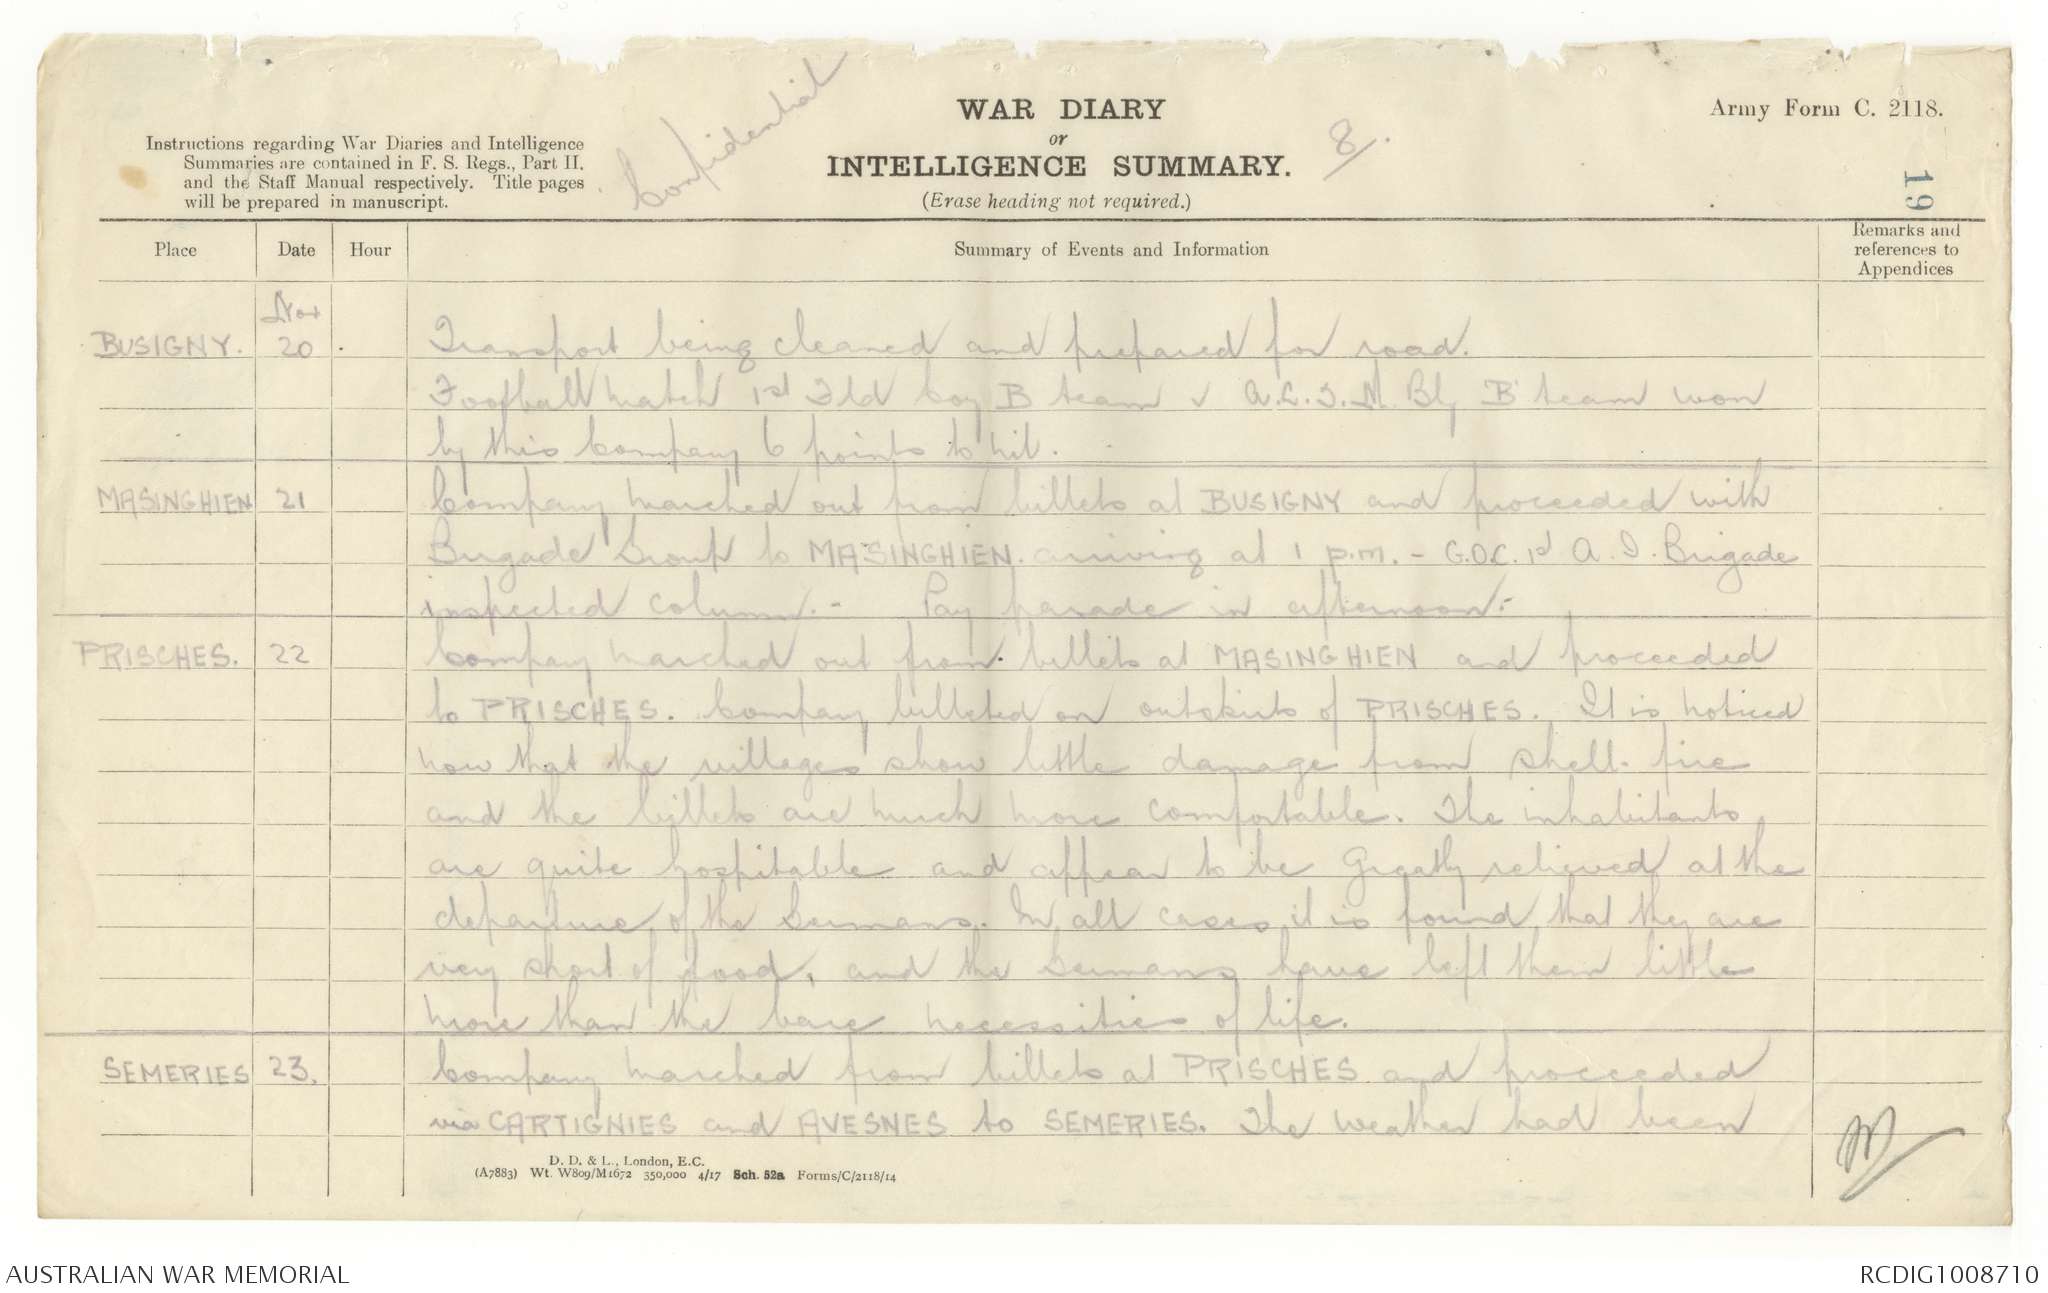 Confidential
WAR DIARY
or
INTELLIGENCE SUMMARY.
(Erase heading not required.)
8/.
Army Form C. 2118.
19
Instructions regarding War Diaries and Intelligence
Summaries are contained in F. S. Regs., Part II.
and the Staff Manual respectively. Title pages
will be prepared in manuscript.
Place Date Hour Summary of Events and Information Remarks and
references to
Appendices
Nov
BUSIGNY. 20 Transport being cleaned and prepared for road.
Football match 1st Fld Coy B team v A.L.T.M. Bty B team won
by this Company 6 points to nil.
MASINGHIEN 21 Company marched out from billets at BUSIGNY and proceeded with
Brigade Group to MASINGHIEN. arriving at 1 p.m. - G.O.C. 1st A.I. Brigade
inspected column. - Pay parade in afternoon. -
PRISCHES. 22 Company marched out from billets at MASINGHIEN and proceeded
to PRISCHES. Company billeted on outskirts of PRISCHES. It is noticed
now that the villages show little damage from shell-fire
and the billets are much more comfortable. The inhabitants
are quite hospitable and appear to be greatly relieved at the
departure of the Germans. In all cases it is found that they are
very short of food, and the Germans have left them little
more than the bare necessities of life.
SEMERIES 23. Company marched from billets at PRISCHES and proceeded
via CARTIGNIES and AVESNES to SEMERIES. The weather had been
D. D. & L., London, E.C.
(A7883) Wt. W809/M1672 350,000 4/17 Sch. 52a Forms/C/2118/14
AUSTRALIAN WAR MEMORIAL
RCDIG1008710